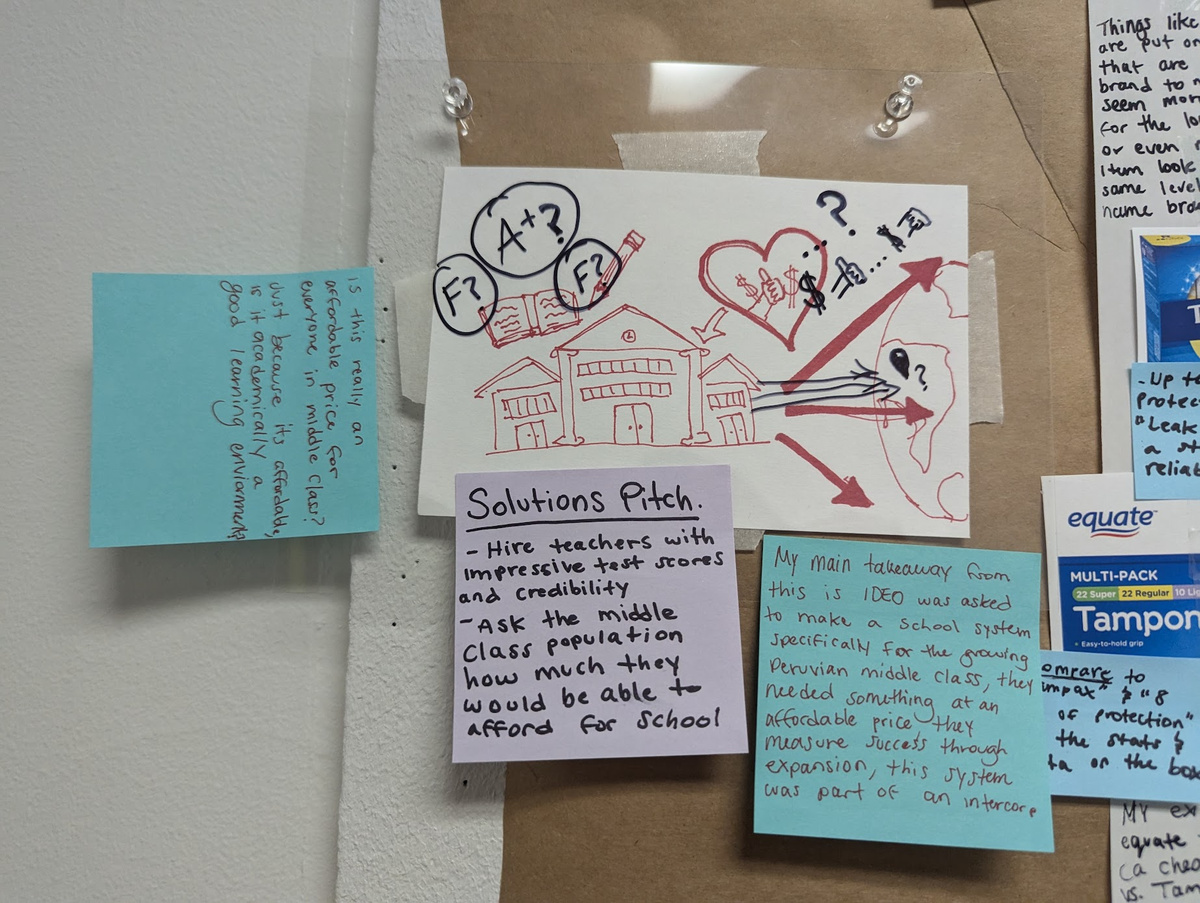 Is this really an
affordable price for
everyone in middle class?
Just because its affordable,
is it academically a
good learning enviorment?
A+?
F?
F?
?
$ $
$
$
?
Solutions Pitch.
- Hire teachers with
impressive test scores
and credibility
- Ask the middle
class population
how much they
would be able to
afford for school
My main takeaway from
this is IDEO was asked
to make a school system
specifically for the growing
Peruvian middle class, they
needed something at an
affordable price they
measure success through
expansion, this system
was part of an intercorp
Things like
are put on
that are
brand to
seem mor
for the lo
or even
item look
same level
name bra
T
- Up to
protec
"Leak
a st
reliab
equate
MULTI-PACK
22 Super 22 Regular 10 Lig
Tampon
• Easy-to-hold grip
ompare to
mpax" & "8
of protection"
the stats &
ta on the box
My ex
equate
(a chea
vs. Tam